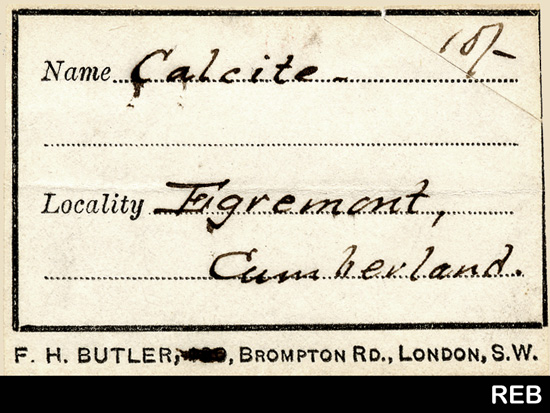 10/-
Name Calcite -
Locality Egremont,
Cumberland.
F. H. BUTLER, , BROMPTON RD., LONDON, S.W.
REB